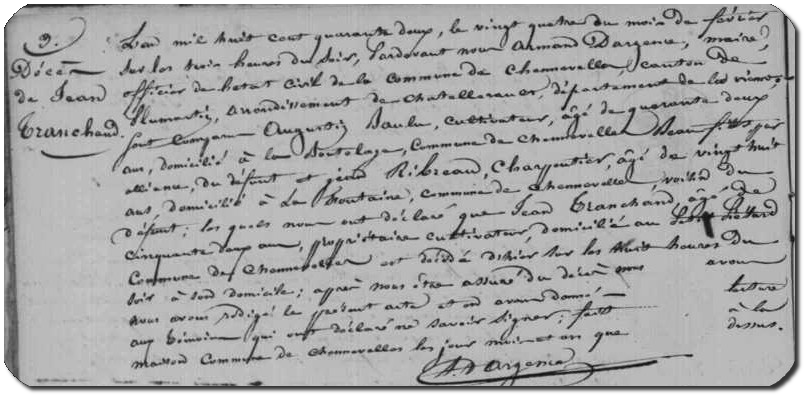 9.
Décès
de Jean
Tranchand.
L'an mil huit cent quarante deux, le vingt quatre du mois de février
sur les trois heures du soir, Pardevant nous Armand Dargence, maire,
officier de l'état civil de la Commune de Chennevelles, canton de
Plumartin, arrondissement de Chatellerault, département de la vienne,
sont comparu Augustin Baulu, cultivateur, âgé de quarante deux
ans, domicilié à la Commune de Chennevelles Beau fils par
alliance, du défunt et Ribreau, Charpentier, âgé de vingt huit
ans, domicilié à La fontaine, commune de Chennevelles, voisin du
défunt; les quels nous ont déclaré que Jean Tranchand, âgé de
cinquante ans, propriétaire cultivateur, domicilié au
Commune de Chennevelles est décédé d'hier sur les huit heures du
soir à son domicile; après nous être assuré du décès nous
avons
nous avons rédigé le présent acte et en avons donné
lecture
aux témoins qui ont déclaré ne savoir signer; fait
à la
maison Commune de Chennevelles les jour mois et an que
dessus.
A. Dargence